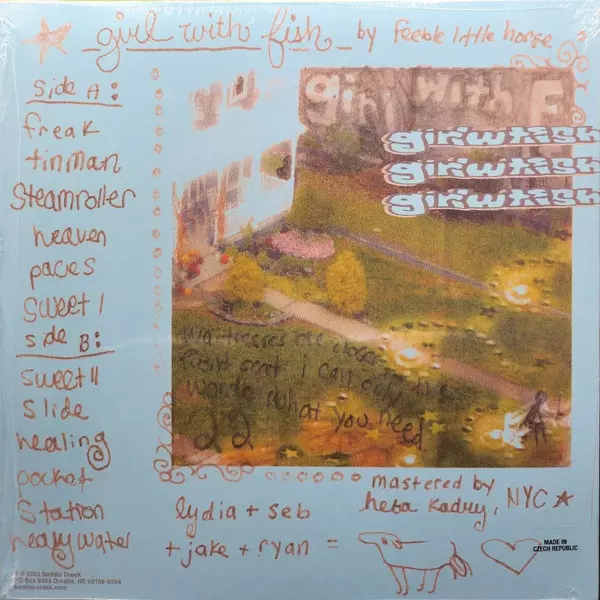 girl with fish by feeble little horse
side A:
freak
tin man
Steamroller
heaven
paces
Sweet I
side B:
sweet II
Slide
healing
pocket
Station
heavy water
girl with F
girl w fish
girl w fish
girl w fish
mattresses are closer
front seat I can only
words what you need
22
mastered by
heba kadry, NYC
lydia + seb
+ jake + ryan =
MADE IN
CZECH REPUBLIC
℗ © 2023 Saddle Creek
PO Box 8554 Omaha, NE 68108-0554
saddle-creek.com